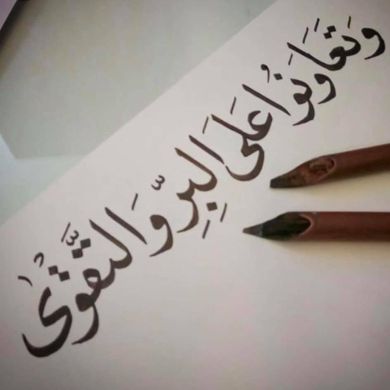 وَتَعَاوَنُوا عَلَى الْبِرِّ وَالتَّقْوَىٰ